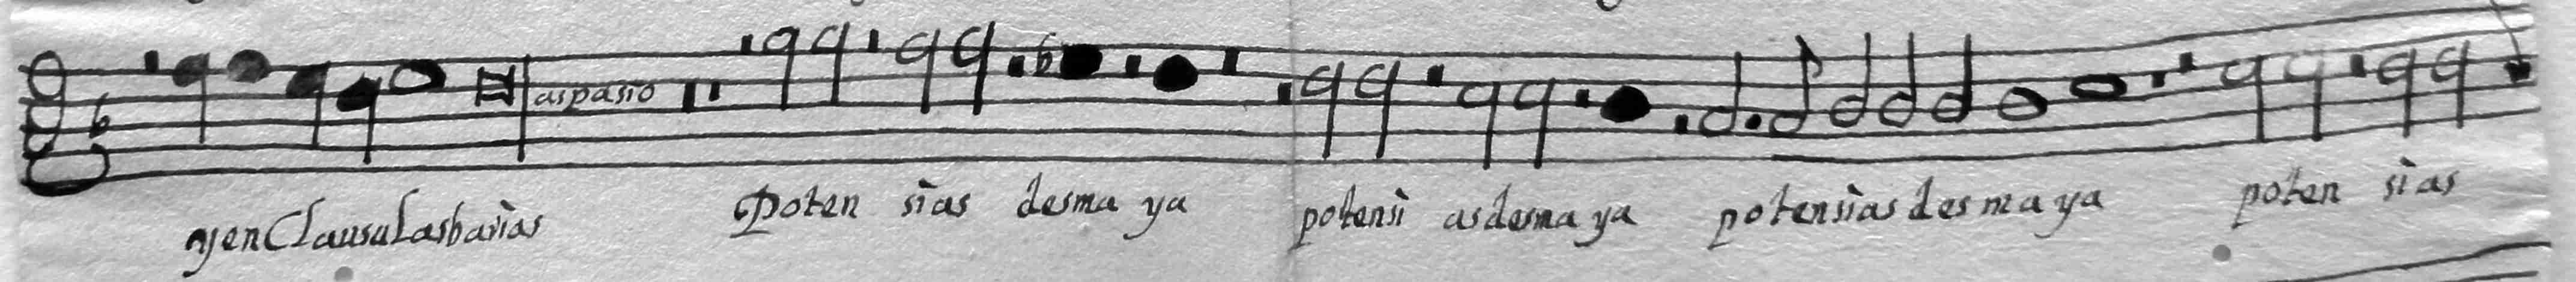 aspasio
yen Clausulas barias Poten sias desma ya potensi as desma ya potensias des ma ya poten sias